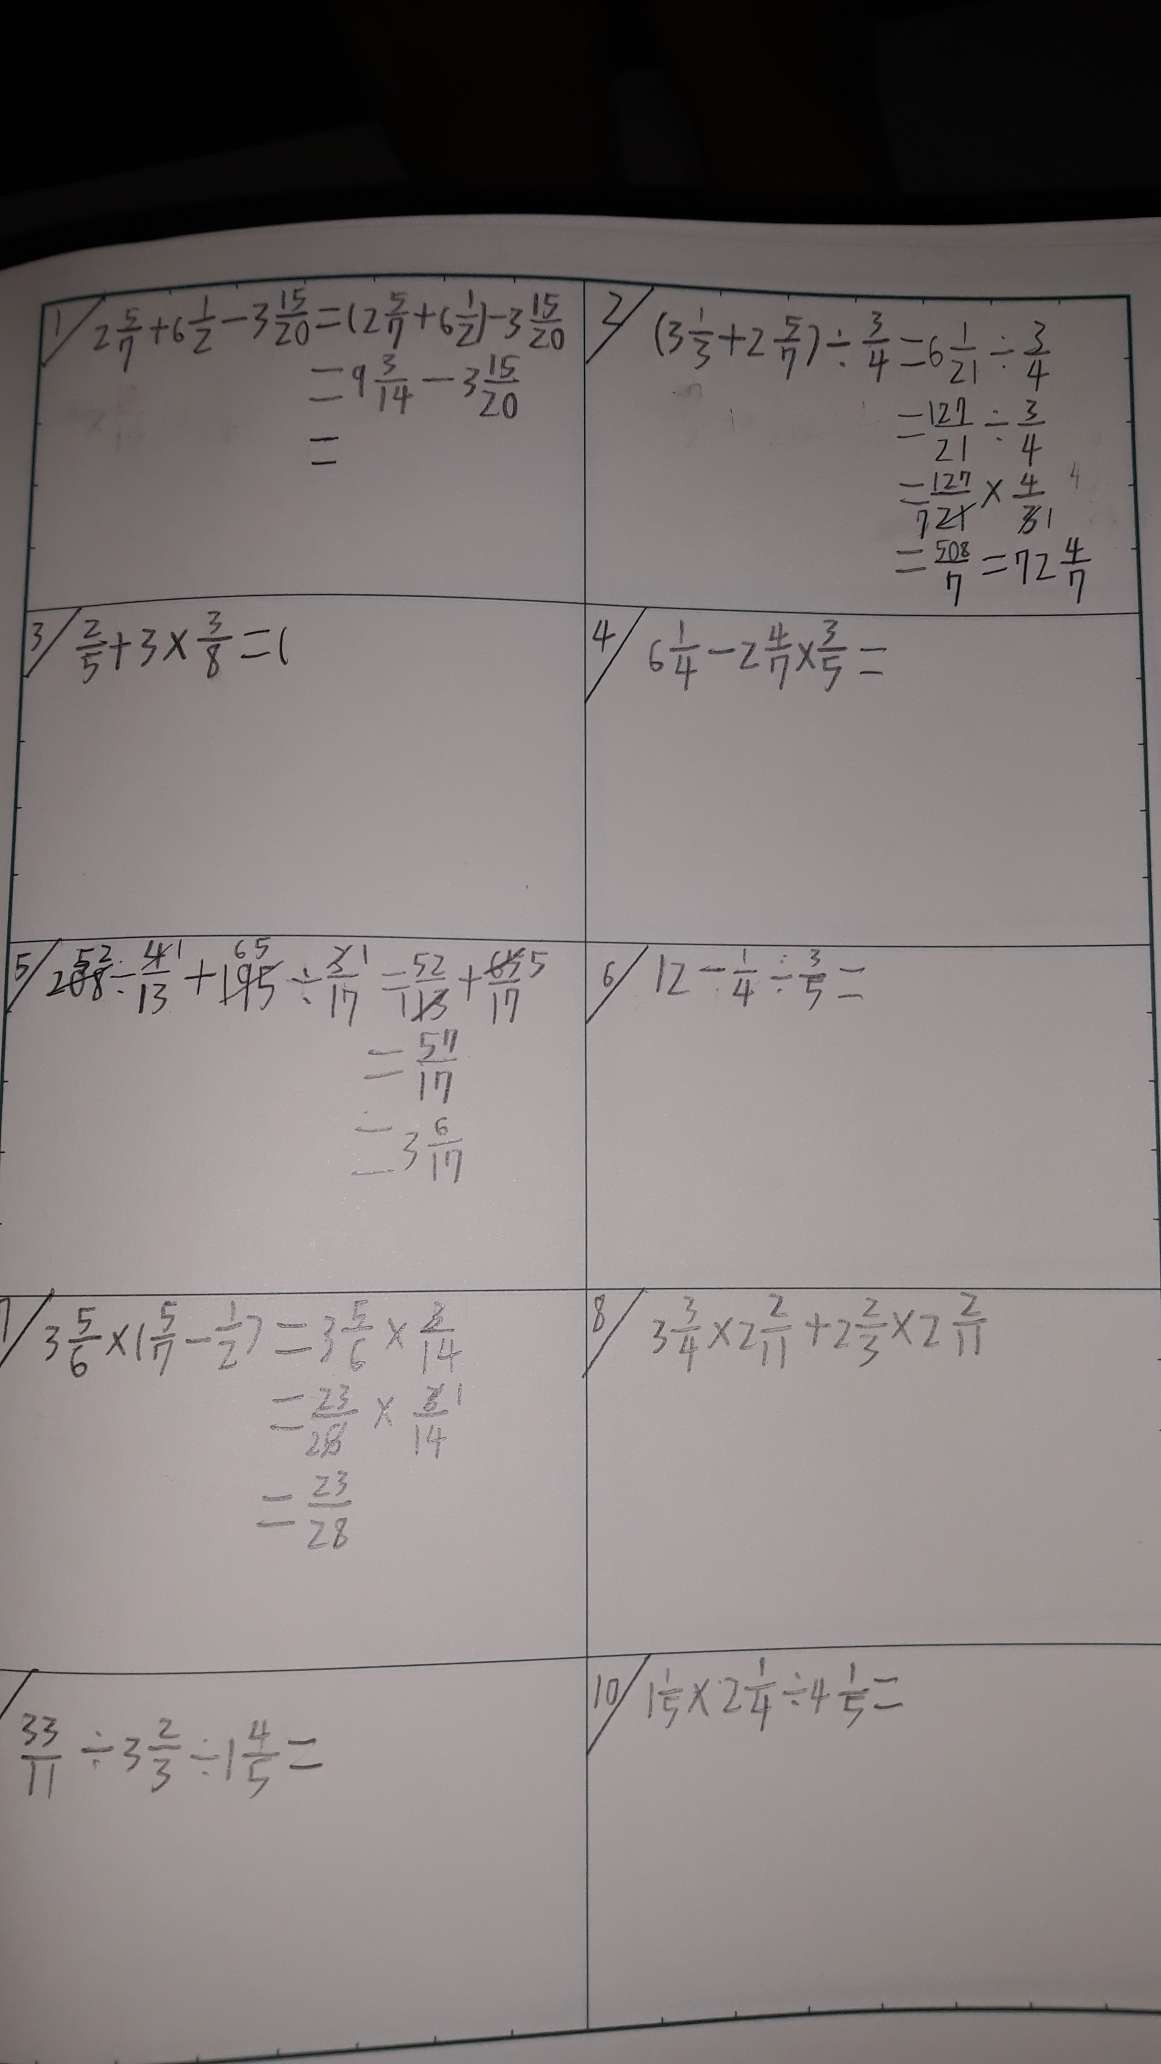 1/ 2 5/7 + 6 1/2 - 3 15/20 = (2 5/7 + 6 1/2) - 3 15/20
= 9 3/14 - 3 15/20
=
2/ (3 1/3 + 2 5/7) ÷ 3/4 = 6 1/21 ÷ 3/4
= 127/21 ÷ 3/4
= 127/21 7 × 4/3 1 4
= 508/7 = 72 4/7
3/ 2/5 + 3 × 3/8 = (
4/ 6 1/4 - 2 4/7 × 3/5 =
5/ 208 52 ÷ 4 1/13 + 195 65 ÷ 3 1/17 = 52/13 1 + 65 5/17
= 57/17
= 3 6/17
6/ 12 - 1/4 ÷ 3/5 =
7/ 3 5/6 × (1 5/7 - 1/2) = 3 5/6 × 3/14
= 23/6 2 × 3 1/14
= 23/28
8/ 3 3/4 × 2 2/11 + 2 2/3 × 2 2/11
33/11 ÷ 3 2/3 ÷ 1 4/5 =
10/ 1 1/5 × 2 1/4 ÷ 4 1/5 =